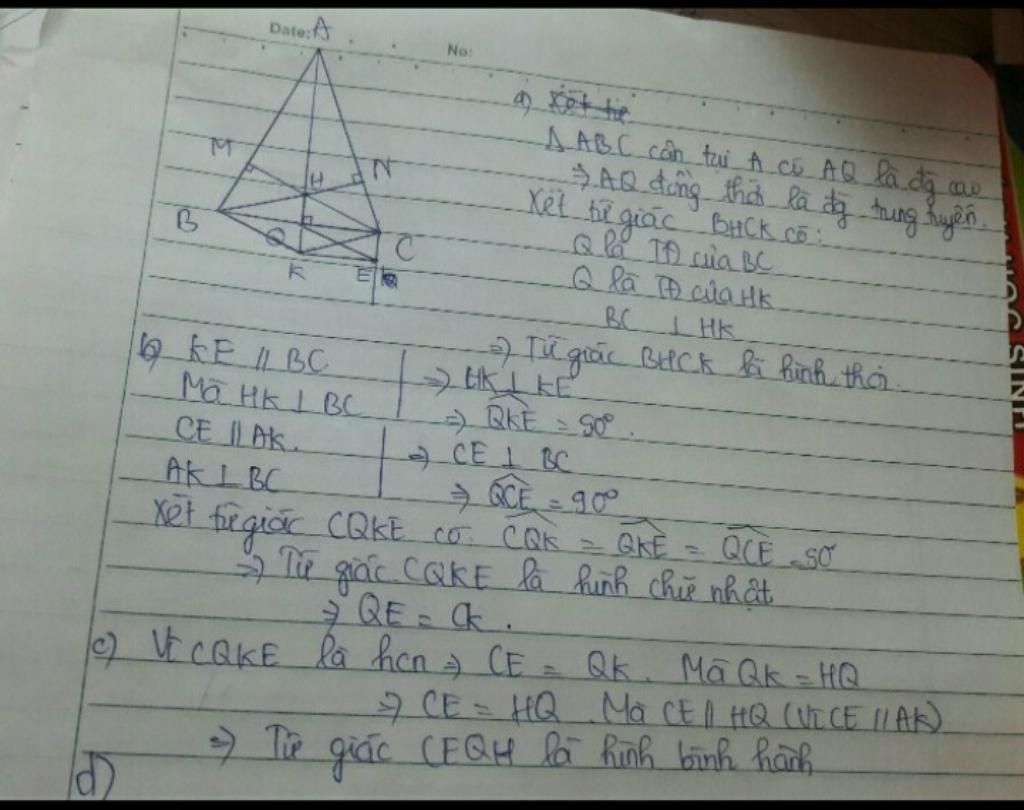 Date:
No:
A
M
N
H
B
Q
C
K
E
a) Xét tứ
Δ ABC cân tại A có AQ là đg cao
⇒ AQ đồng thời là đg trung tuyến.
Xét tứ giác BHCK có:
Q là TĐ của BC
Q là TĐ của HK
BC ⊥ HK
⇒ Tứ giác BHCK là hình thoi.
b) KE // BC
Mà HK ⊥ BC
⇒ HK ⊥ KE
⇒ QKE = 90°.
CE // AK.
AK ⊥ BC
⇒ CE ⊥ BC
⇒ QCE = 90°
Xét tứ giác CQKE có: CQK = QKE = QCE = 90
⇒ Tứ giác CQKE là hình chữ nhật
⇒ QE = CK.
c) Vì CQKE là hcn ⇒ CE = QK. Mà QK = HQ
⇒ CE = HQ. Mà CE // HQ (Vì CE // AK)
⇒ Tứ giác CEQH là hình bình hành
d)
HOC SINH